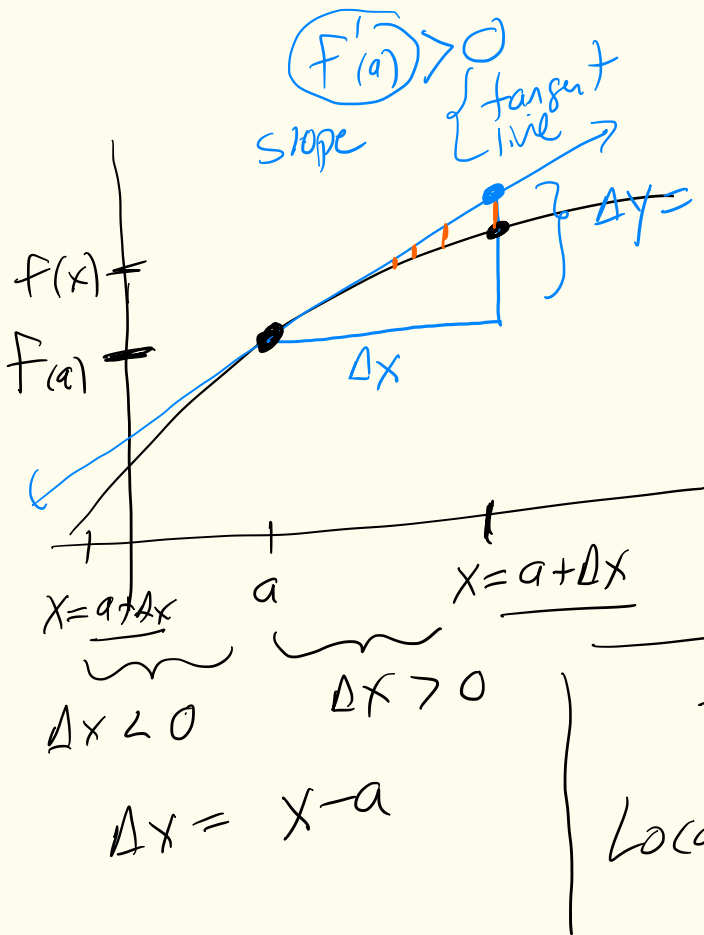 F'(a) > 0
slope { tangent line
f(x)
F(a)
Δy =
Δx
x = a+Δx
a
x = a+Δx
Δx < 0
Δx > 0
Δx = x-a
Loca